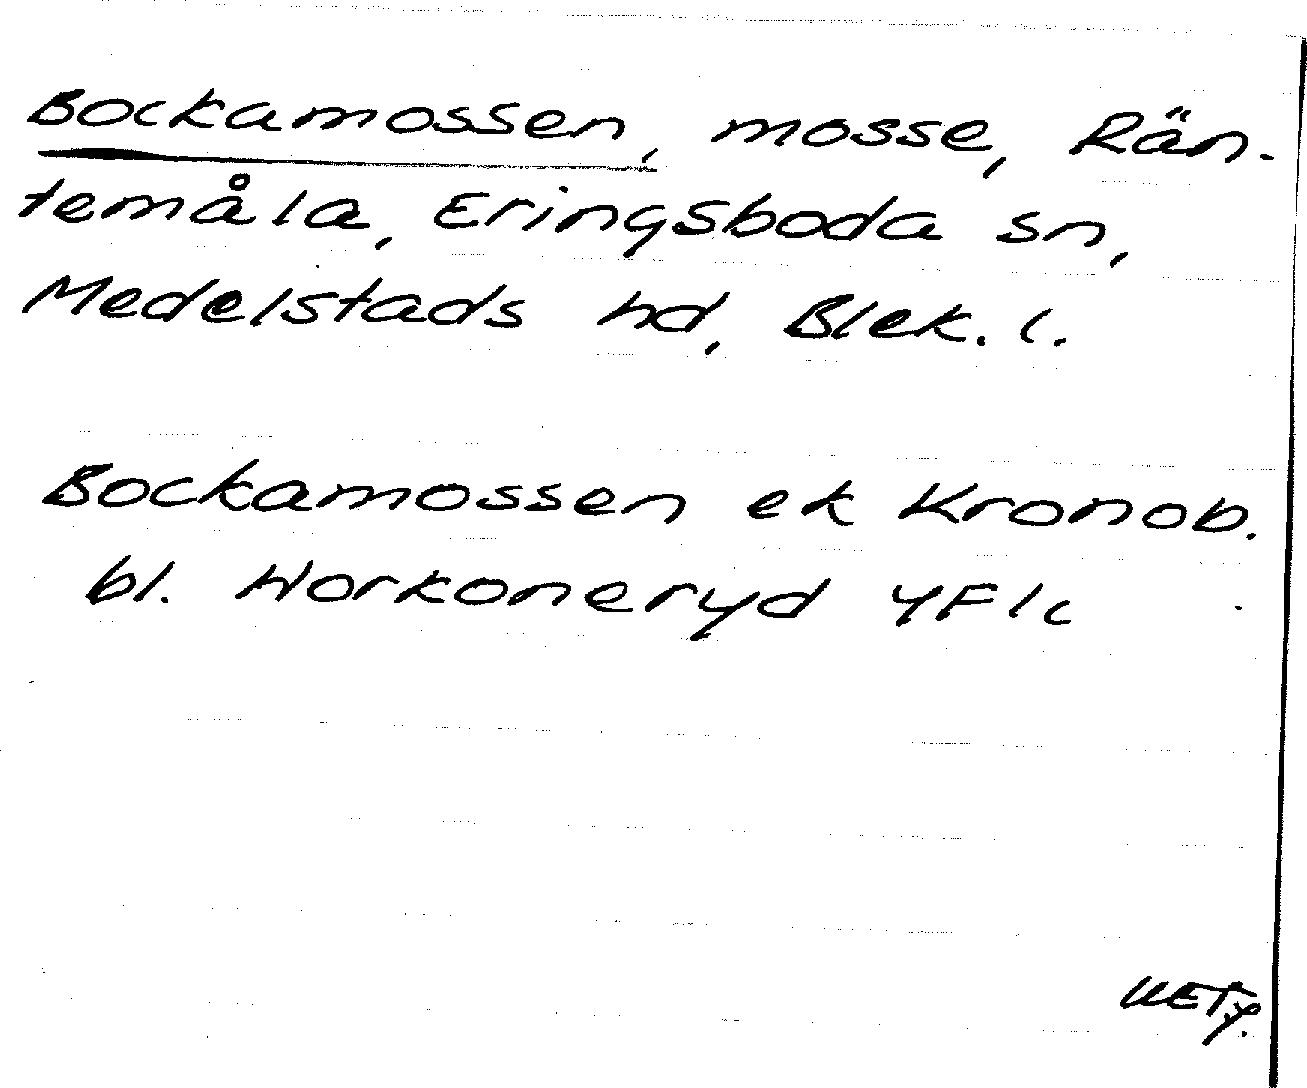 Bockamossen, mosse, Rän-
temåla, Eringsboda sn,
Medelstads hd, Blek. l.
Bockamossen ek Kronob.
bl. Horkoneryd 4F1c